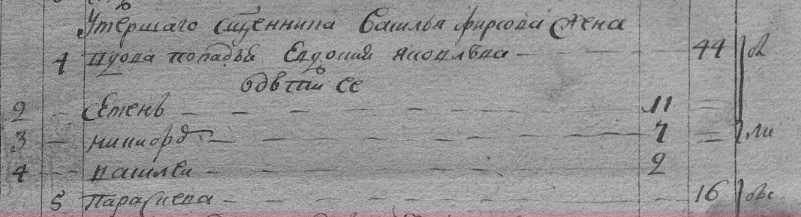 Умершаго сщенника Василья фирсова жена
1 вдова попадья Евдокия яковлева 44
одети ее
2 Семенъ 11
3 никифоръ 7
4 василеи 2
5 Парасковя 16